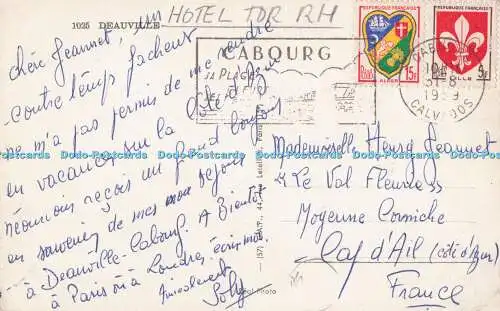 HOTEL TDR RH
1025 DEAUVILLE
Chère Jeannet, un
contretemps fâcheux
ne m'a pas permis de me rendre
en vacances sur la Côte d'Azur
Néanmoins reçois un grand bonjour
en souvenir de mes mon séjour
à Deauville-Cabourg. A Bientôt
à Paris ou à Londres, écris-moi.
Amicalement
CABOURG
SA PLAGE
REPUBLIQUE FRANÇAISE
15F
ALGER
REPUBLIQUE FRANÇAISE
5F
LILLE
CABOURG
31-8
1959
CALVADOS
Mademoiselle Henry Jeannet
Le Val Fleuri
Moyenne Corniche
Cap d'Ail (Côte d'Azur)
France
Photo
Dodo-Postcards Dodo-Postcards Dodo-Postcards Dodo-Postcards Dodo-Postcards